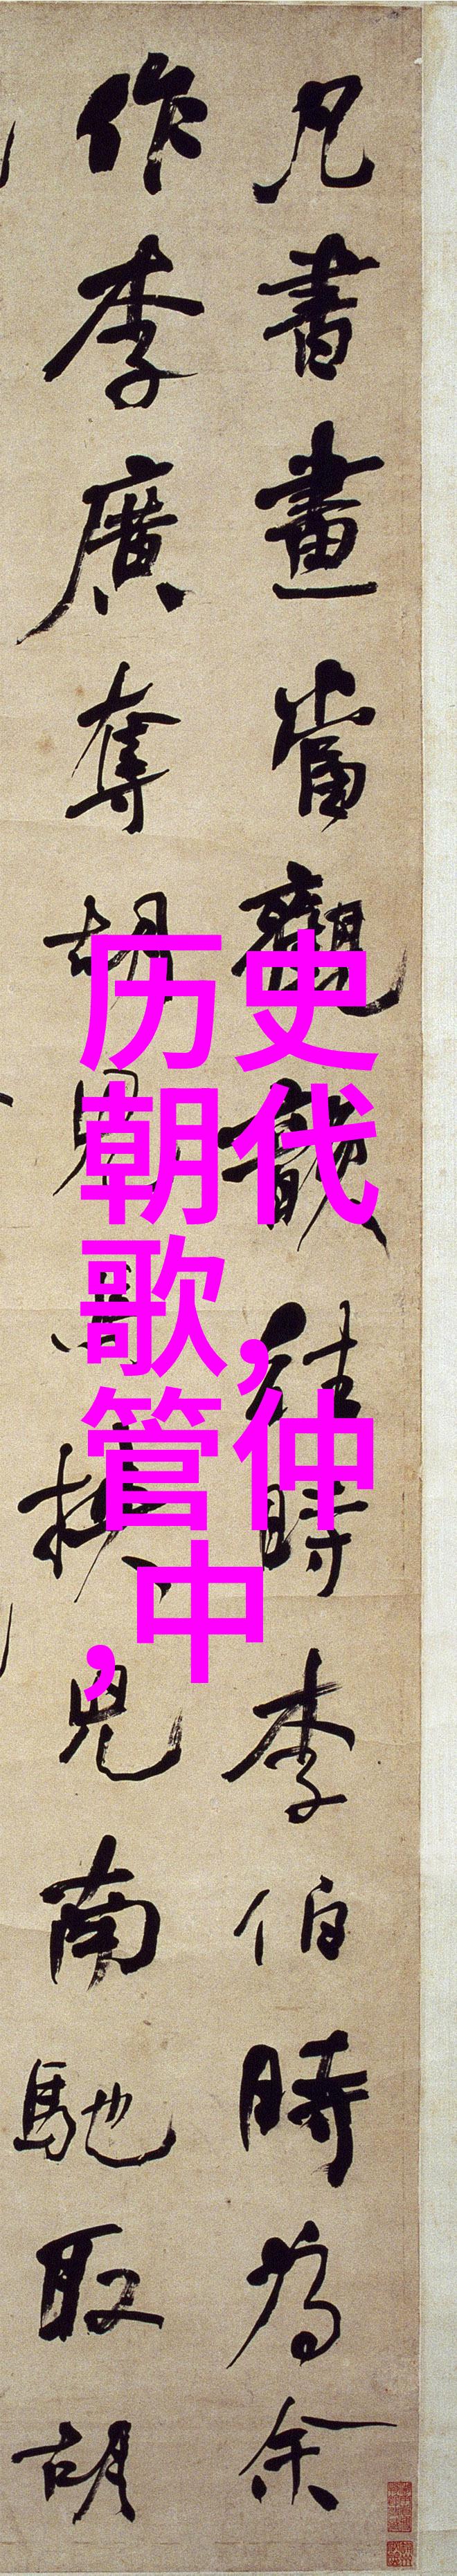 凡書畫當觀韻往時李伯時為余
作李廣奪胡兒馬挾兒南馳取胡
历史
朝代
歌,
管仲
,中